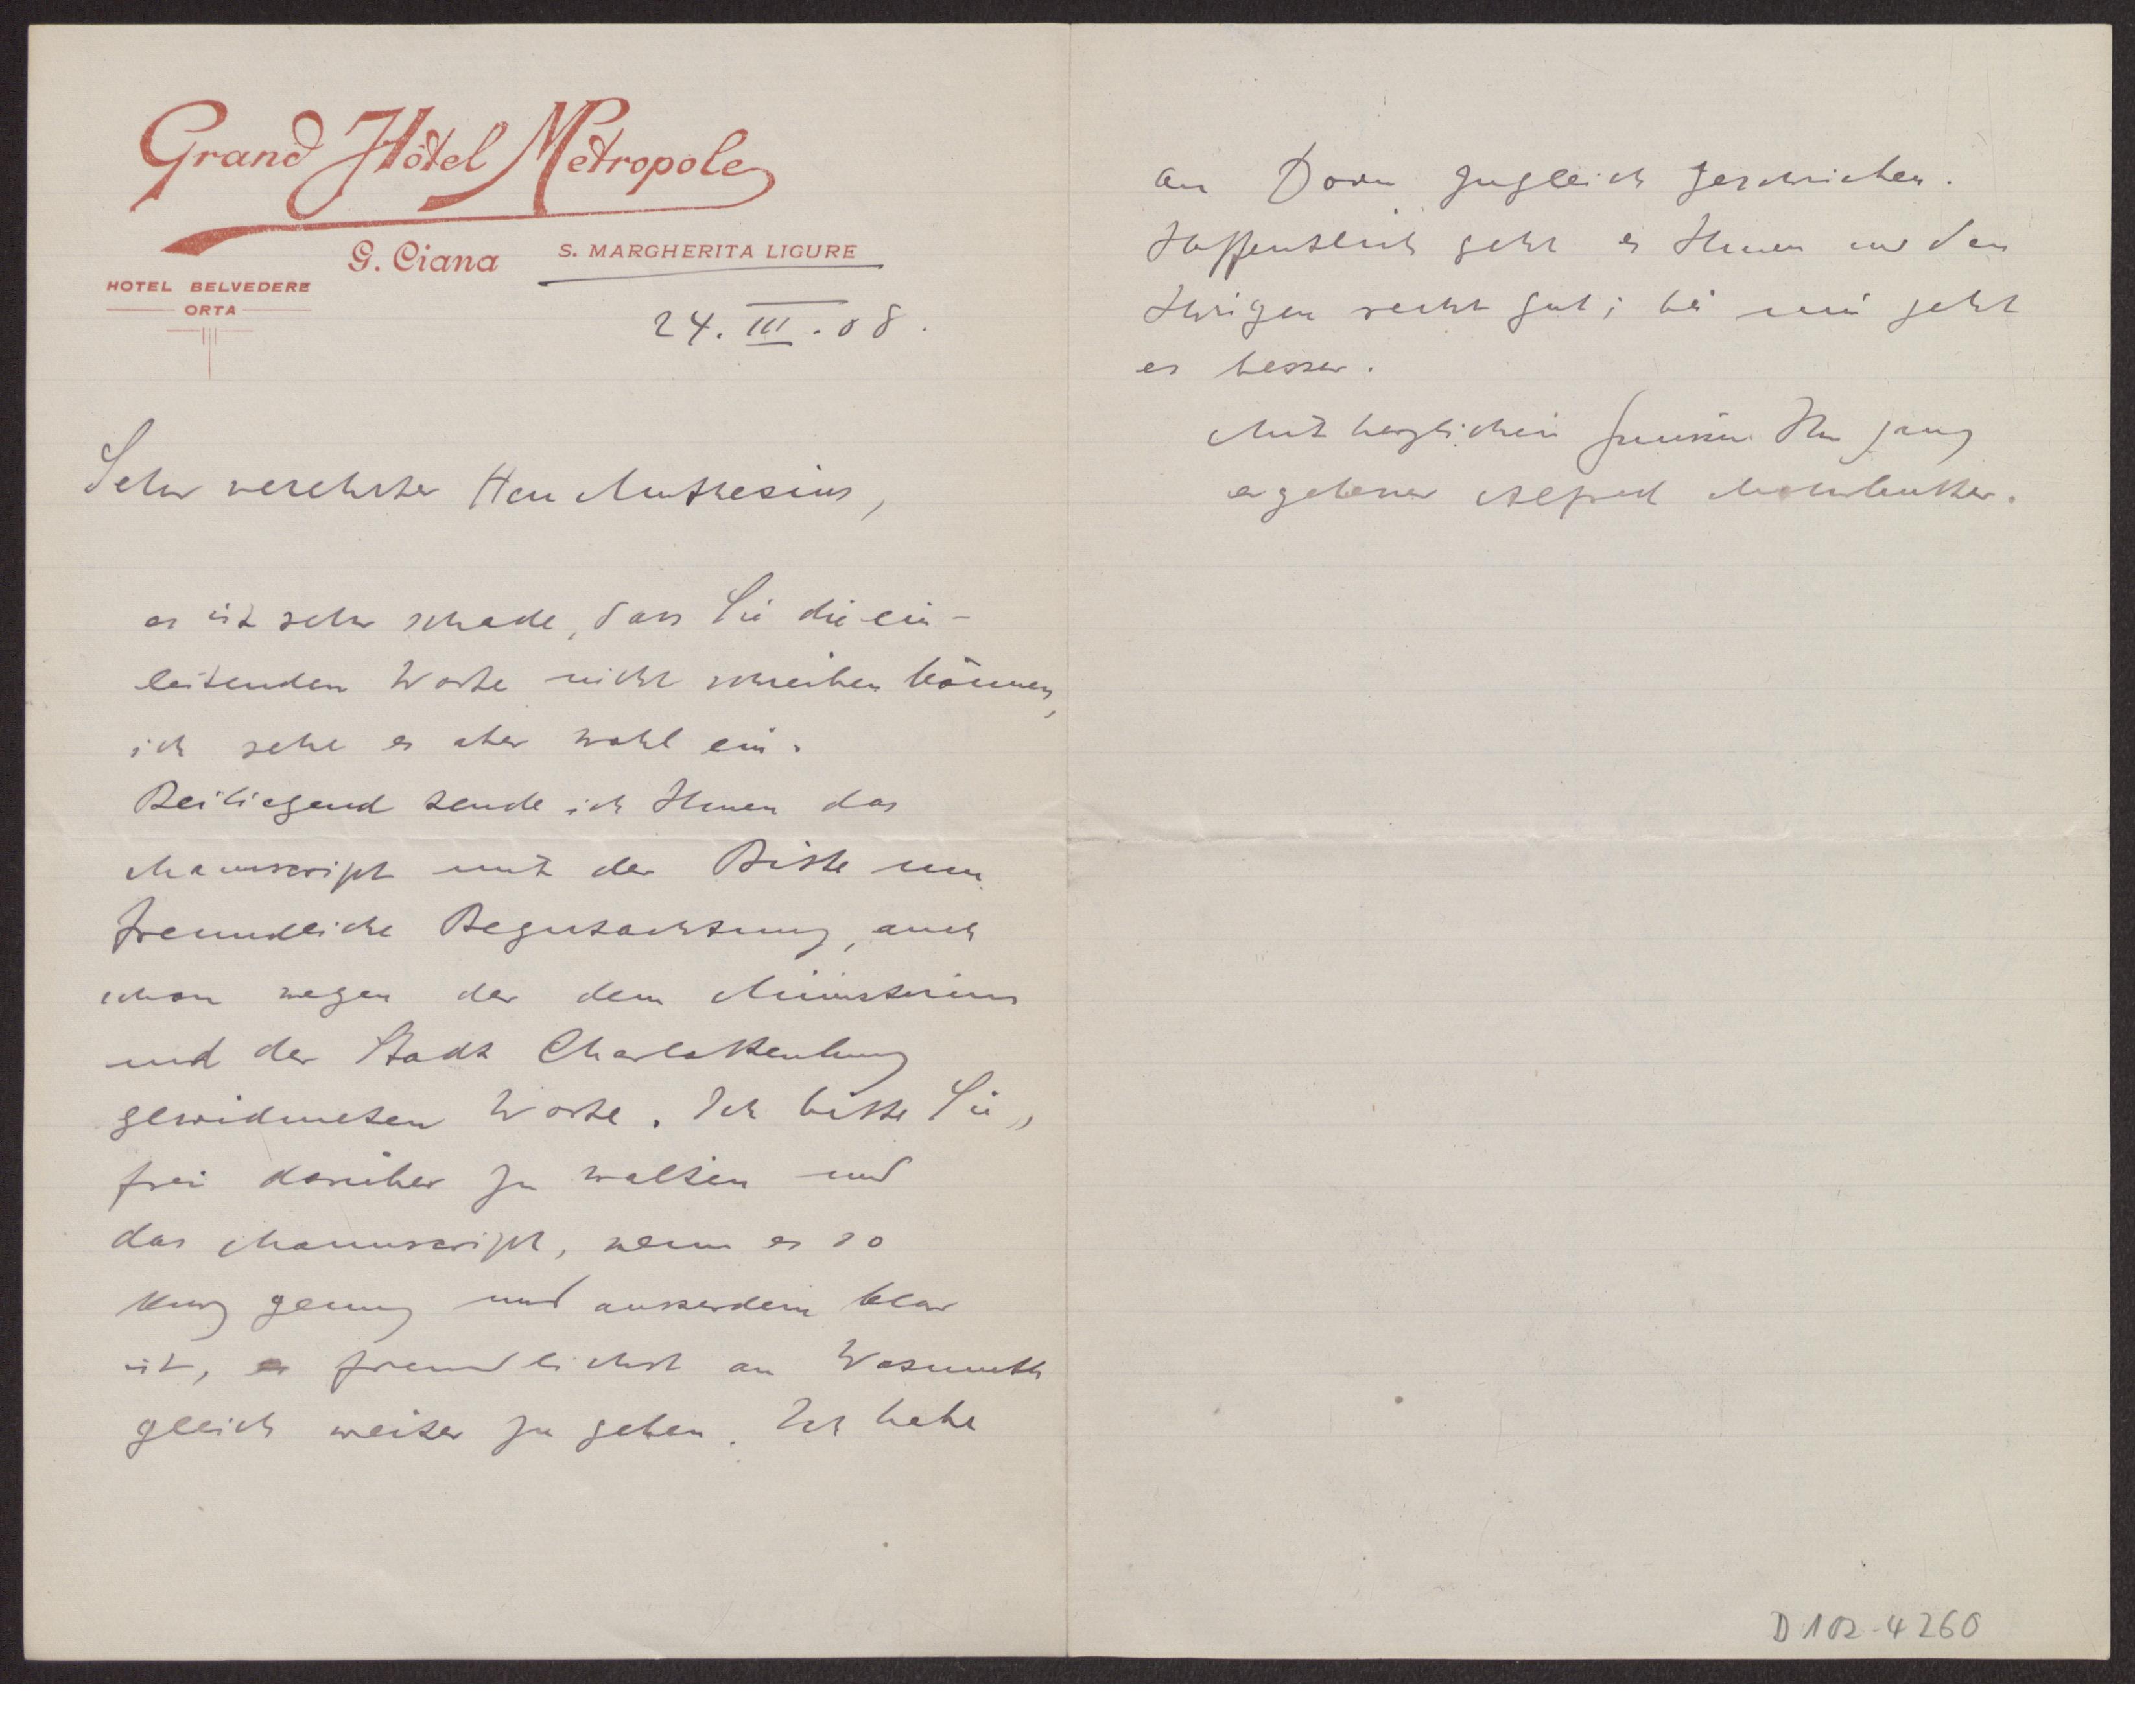 Grand Hôtel Metropole
G. Ciana S. MARGHERITA LIGURE
HOTEL BELVEDERE
ORTA
24. III. 08.
Sehr verehrter Herr Muthesius,
es ist sehr schade, dass Sie die ein-
leitenden Worte nicht schreiben können,
ich sehe es aber wohl ein.
Beiliegend sende ich Ihnen das
Manuscript mit der Bitte um
freundliche Begutachtung, auch
schon wegen der dem Ministerium
und der Stadt Charlottenburg
gewidmeten Worte. Ich bitte Sie,
frei darüber zu walten und
das Manuscript, wenn es so
kurz genug und ausserdem klar
ist, es freundlichst an Wasmuth
gleich weiter zu geben. Ich habe
an Dorn zugleich geschrieben.
Hoffentlich geht es Ihnen und den
Ihrigen recht gut; bei mir geht
es besser.
Mit herzlichen Grüssen Ihr ganz
ergebener Alfred Mohrbutter.
D 102-4260